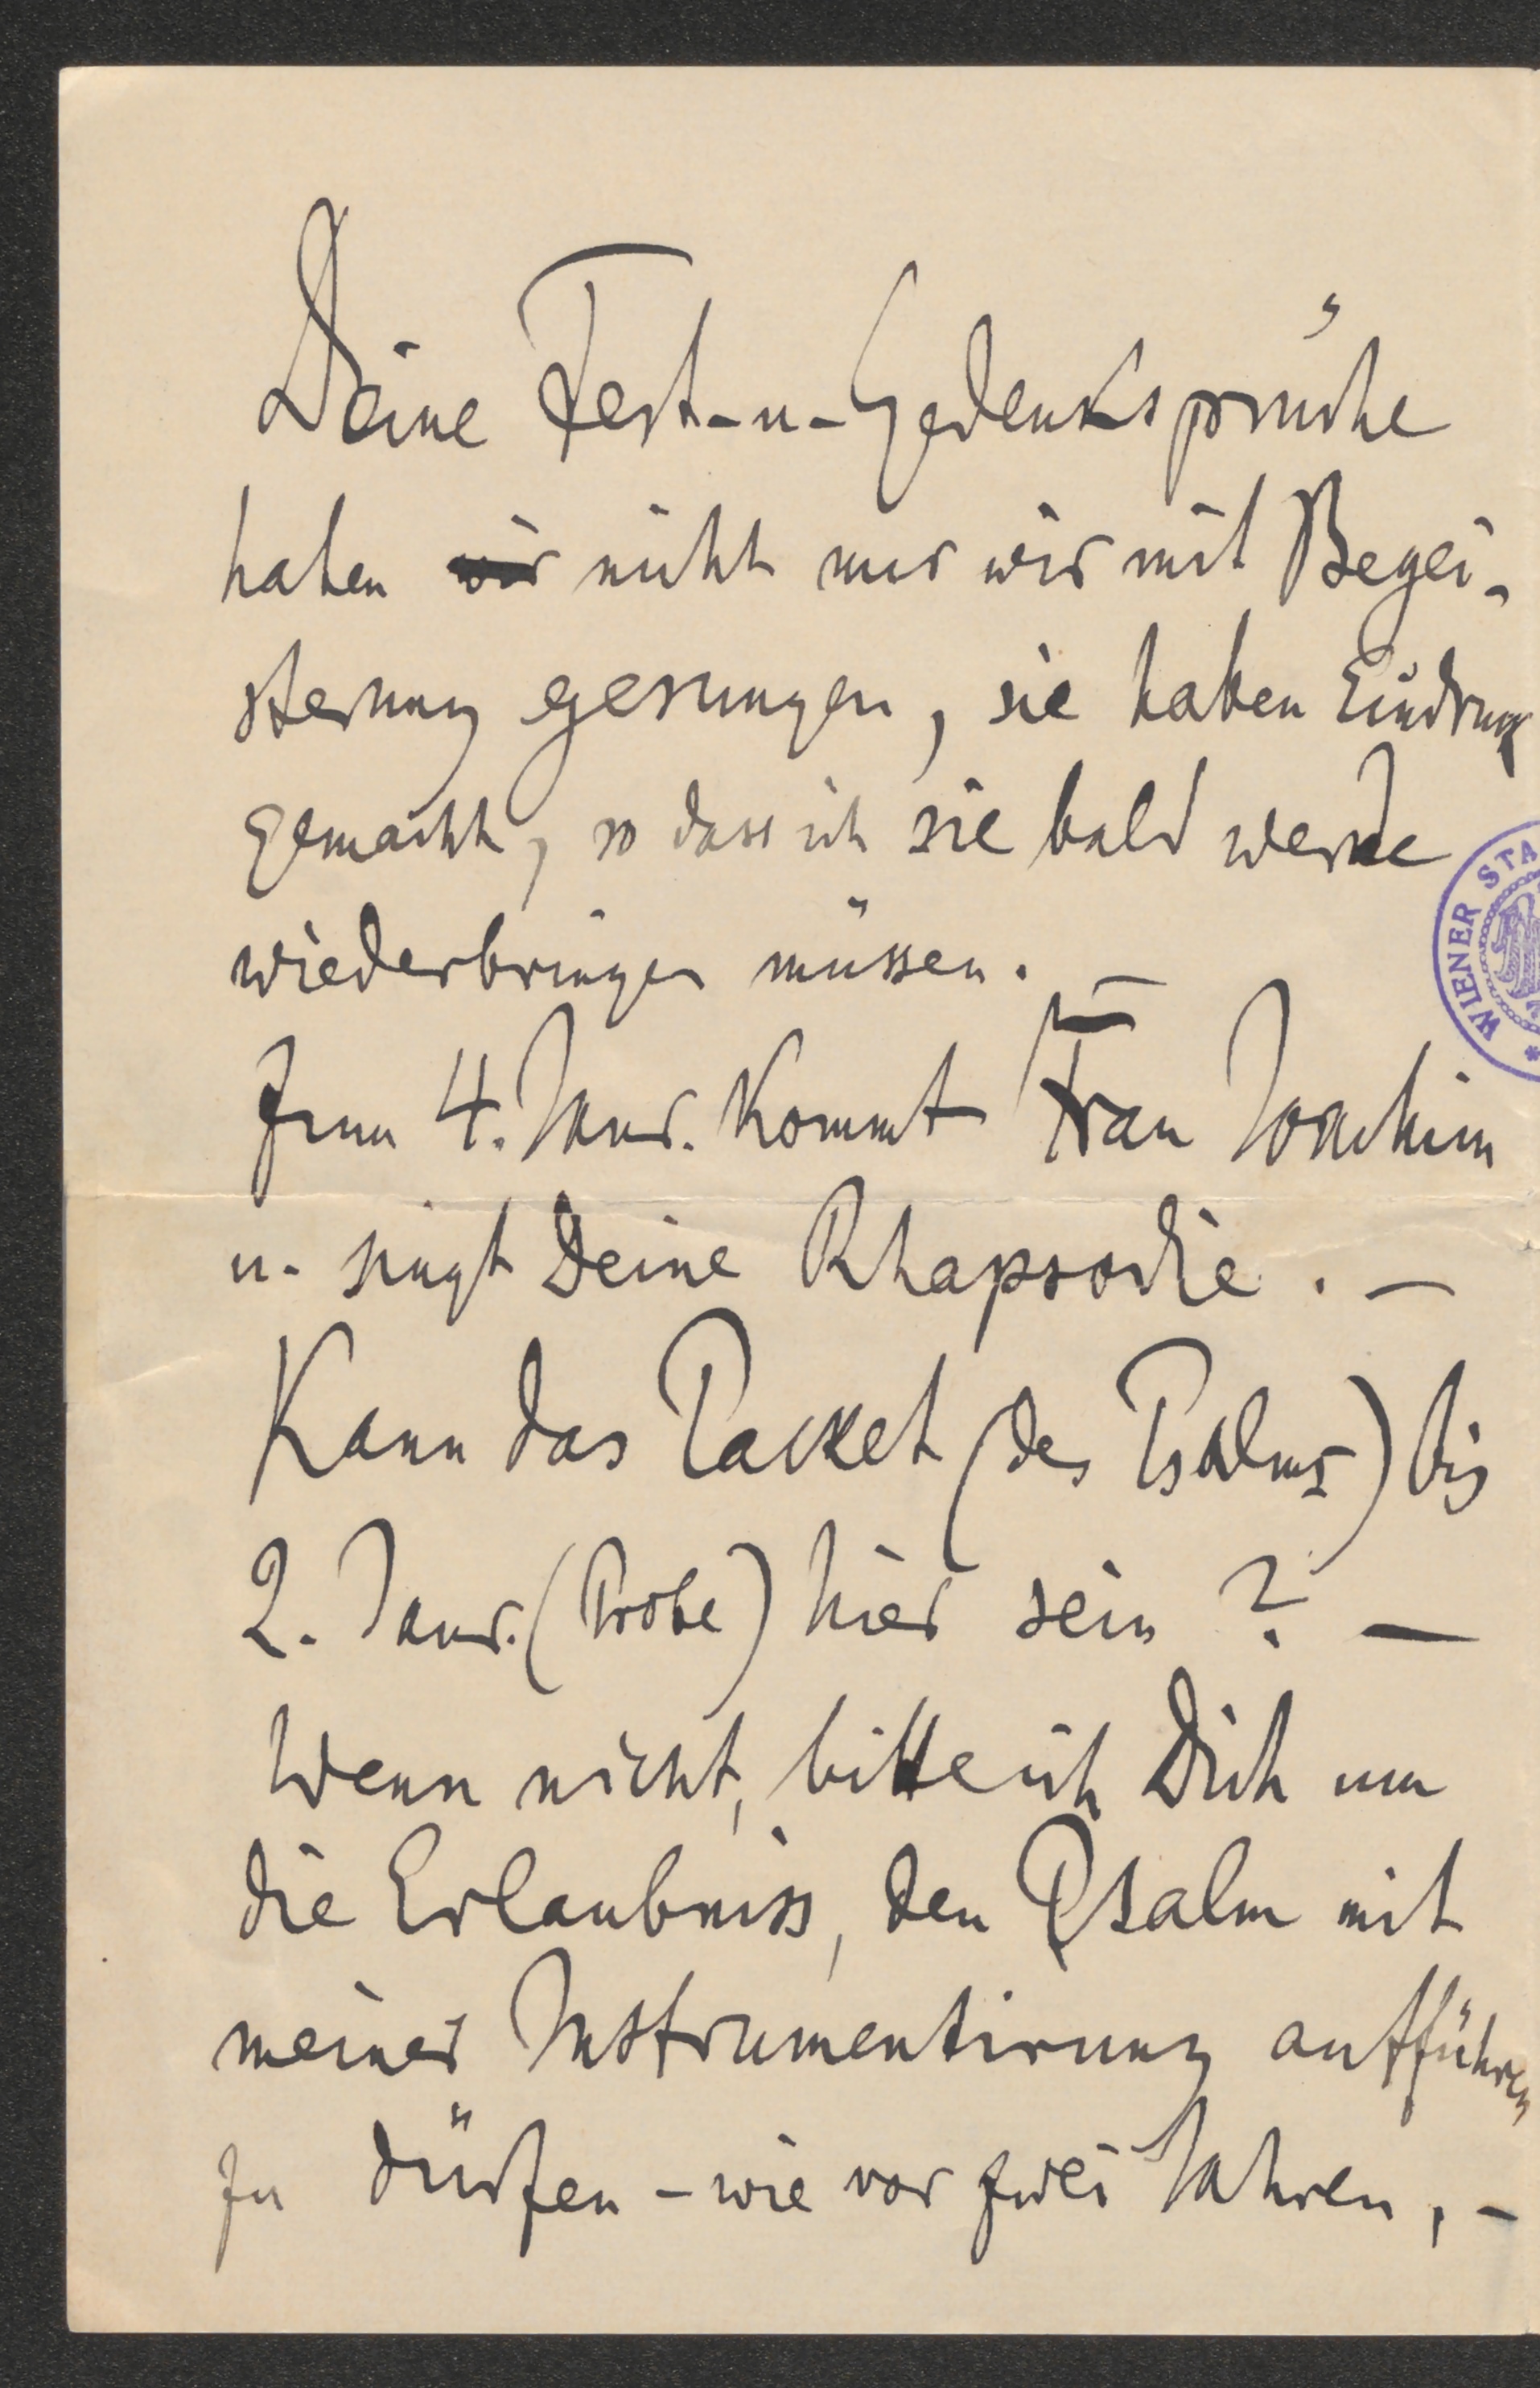 Deine Fest-u-Gedenksprüche
haben wir nicht nur wir mit Begei-
sterung gesungen, sie haben Eindruck
gemacht, so dass ich sie bald werde
wiederbringen müssen. —
Zum 4. Janr. kommt Frau Joachim
u. singt Deine Rhapsodie. —
Kann das Packet (des Psalms) bis
2. Janr. (Probe) hier sein? —
Wenn nicht, bitte ich Dich um
die Erlaubniss, den Psalm mit
meiner Instrumentirung aufführen
zu dürfen – wie vor zwei Jahren, –
WIENER STA